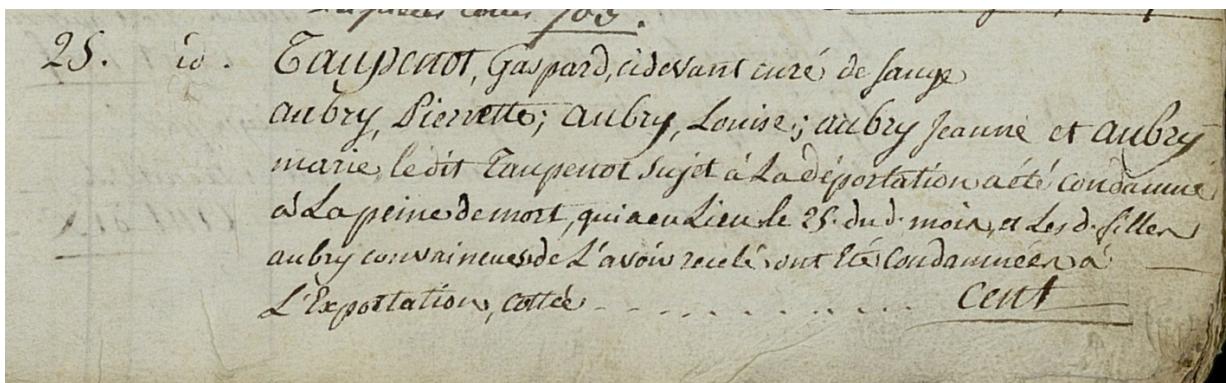 25. id. Taupenot, Gaspard, cidevant curé de sauge
aubry, Pierrette; aubry, Louise; aubry Jeanne et aubry
marie, le dit Taupenot sujet à La déportation a été condamné
à La peine de mort, qui a eu Lieu le 25. du d. mois, et Les d. filles
aubry convaincues de L'avoir recelé ont Eté Condamnées à
L'Exportation, cottée - - - . . . . . . . . Cent